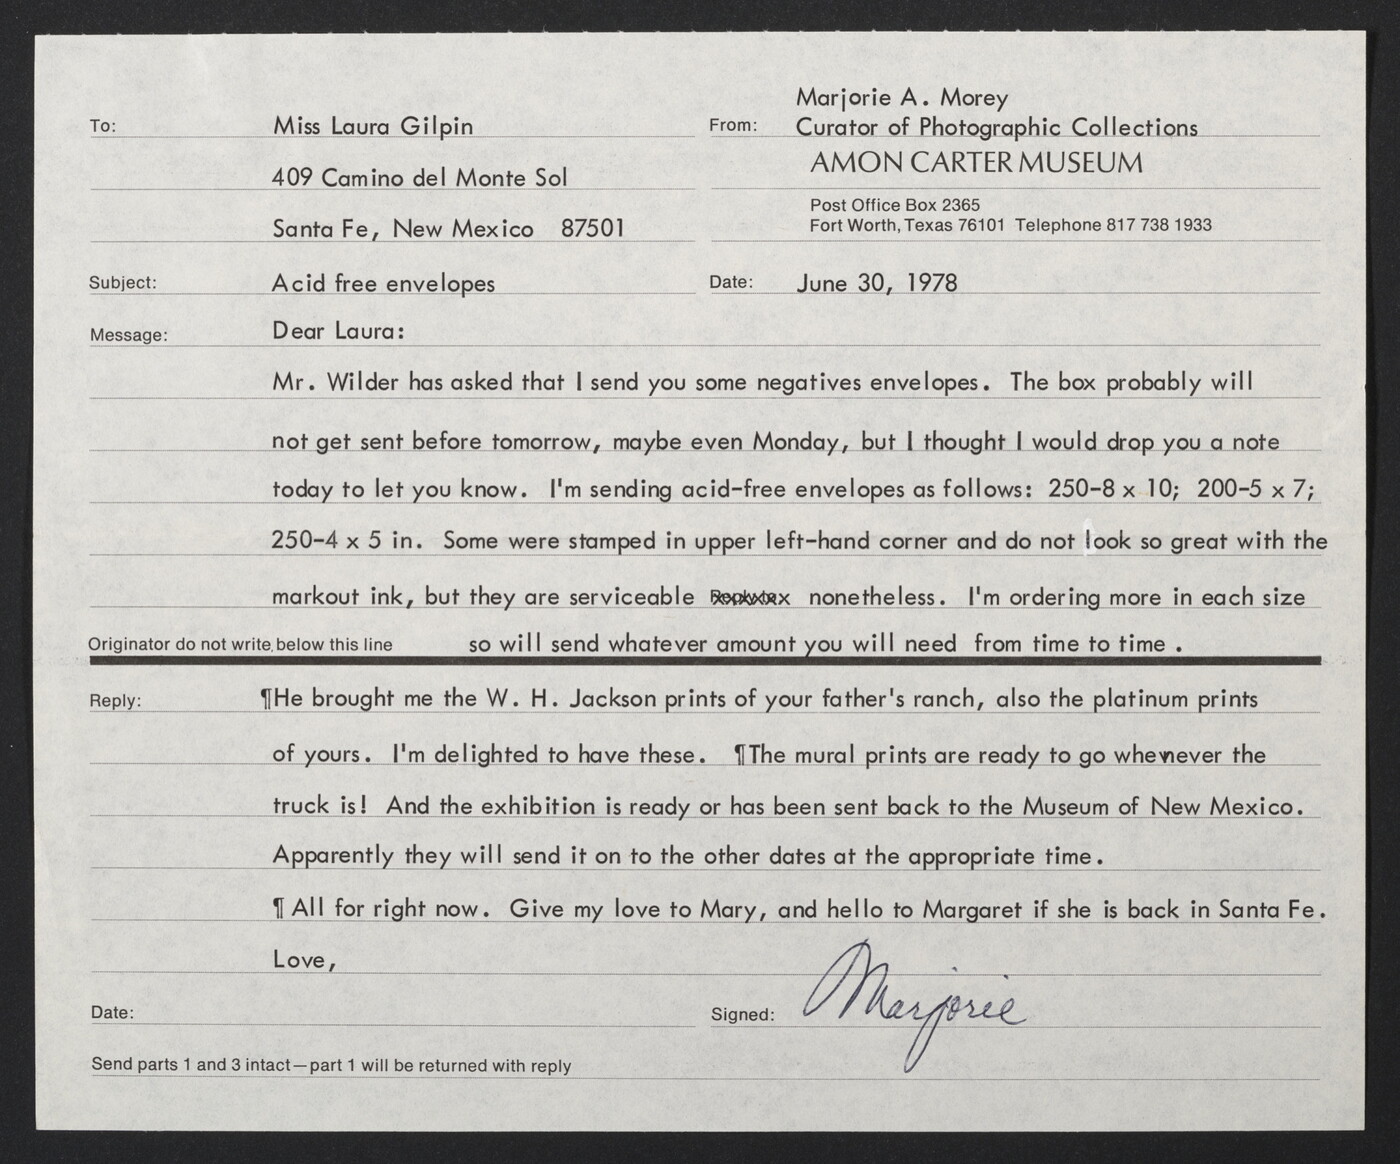 Marjorie A. Morey
To: Miss Laura Gilpin From: Curator of Photographic Collections
AMON CARTER MUSEUM
409 Camino del Monte Sol
Post Office Box 2365
Santa Fe, New Mexico 87501 Fort Worth, Texas 76101 Telephone 817 738 1933
Subject: Acid free envelopes Date: June 30, 1978
Message: Dear Laura:
Mr. Wilder has asked that I send you some negatives envelopes. The box probably will
not get sent before tomorrow, maybe even Monday, but I thought I would drop you a note
today to let you know. I'm sending acid-free envelopes as follows: 250-8 x 10; 200-5 x 7;
250-4 x 5 in. Some were stamped in upper left-hand corner and do not look so great with the
markout ink, but they are serviceable nonetheless. I'm ordering more in each size
Originator do not write below this line so will send whatever amount you will need from time to time .
Reply: ¶He brought me the W. H. Jackson prints of your father's ranch, also the platinum prints
of yours. I'm delighted to have these. ¶The mural prints are ready to go whenever the
truck is! And the exhibition is ready or has been sent back to the Museum of New Mexico.
Apparently they will send it on to the other dates at the appropriate time.
¶ All for right now. Give my love to Mary, and hello to Margaret if she is back in Santa Fe.
Love,
Date: Signed: Marjorie
Send parts 1 and 3 intact—part 1 will be returned with reply